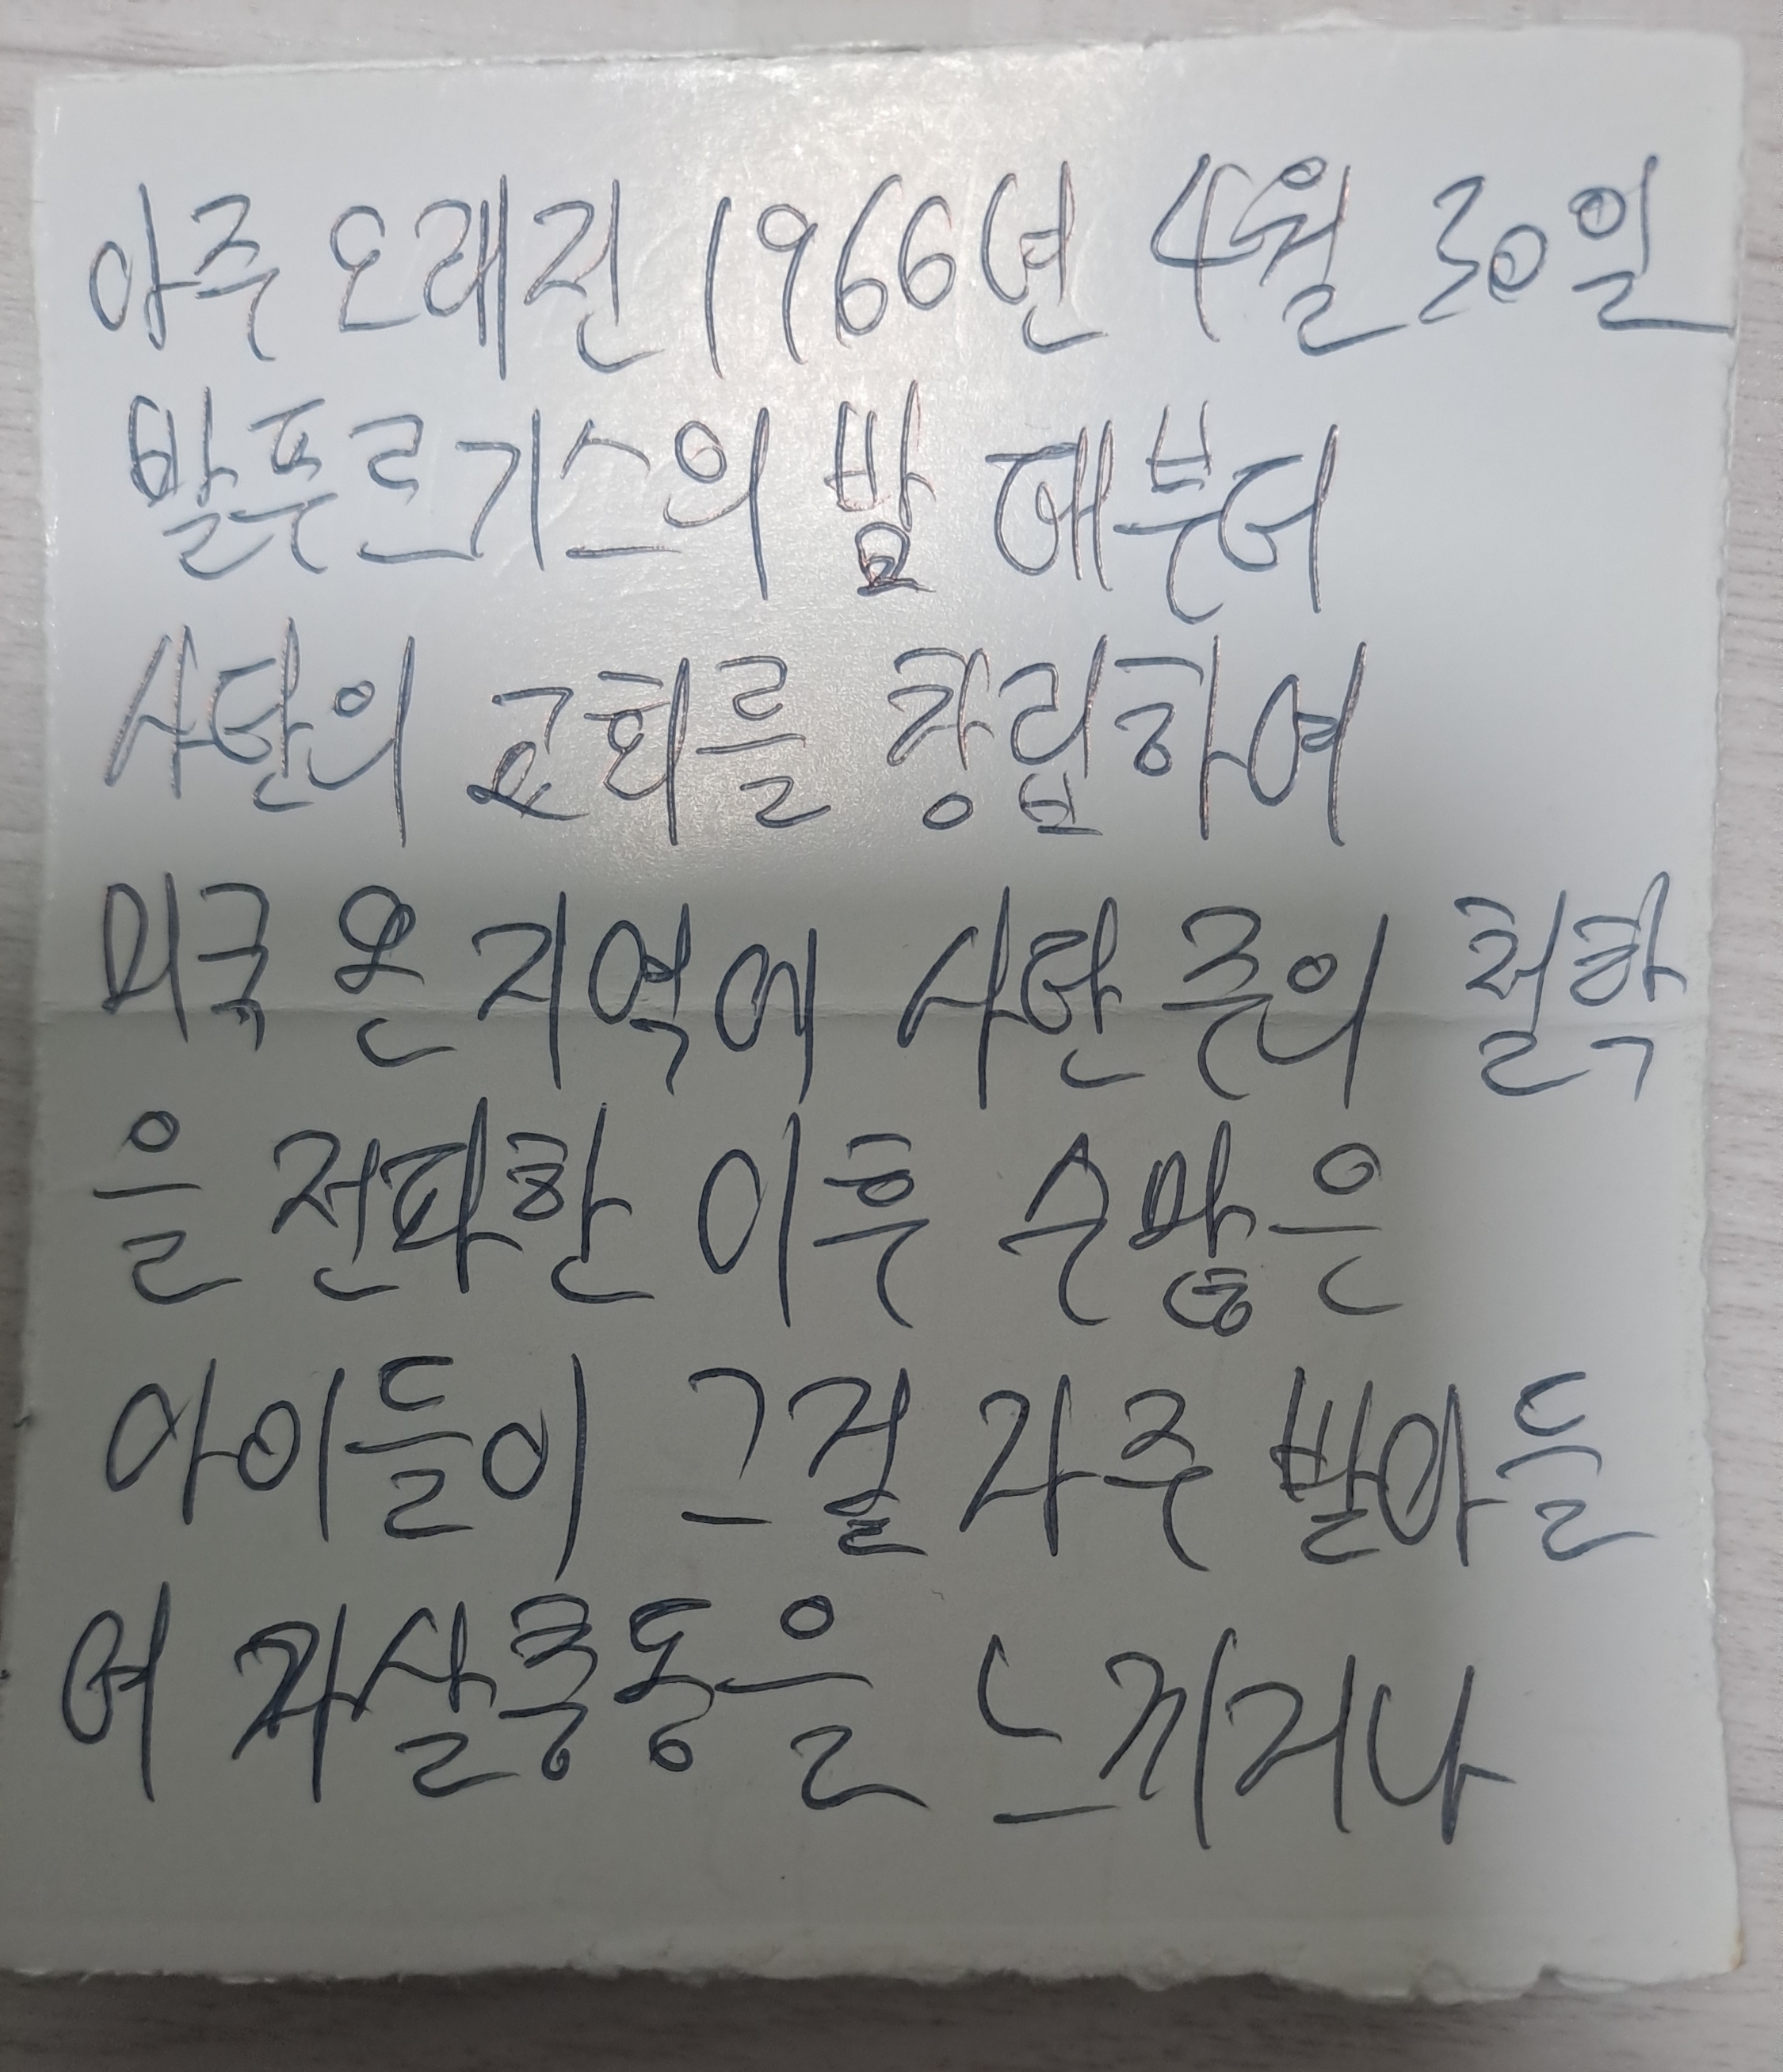 아주 오래진 1966년 4월 30일
발푸르기스의 밤 때부터
사탄의 교회를 창립하여
미국 온 지역에 사탄주의 철학
을 전파한 이후 수많은
아이들이 그걸 자주 받아들
여 자살충동을 느끼거나